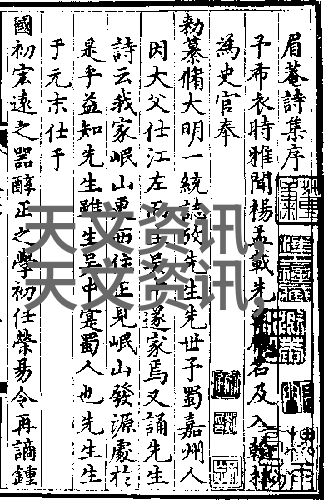 眉菴詩集序
予布衣時雅聞楊孟載先生名及入翰林
為史官奉
勅纂脩大明一統誌攷先生先世予蜀嘉州人
因大父仕江左而生吳遂家焉又誦先生
詩云我家岷山東西住正見岷山發源處於
是乎益知先生雖生吳中寔蜀人也先生生
于元末仕于
國初宏遠之器醇正之學初任滎昜令再謫鍾
天文资讯
天文资讯